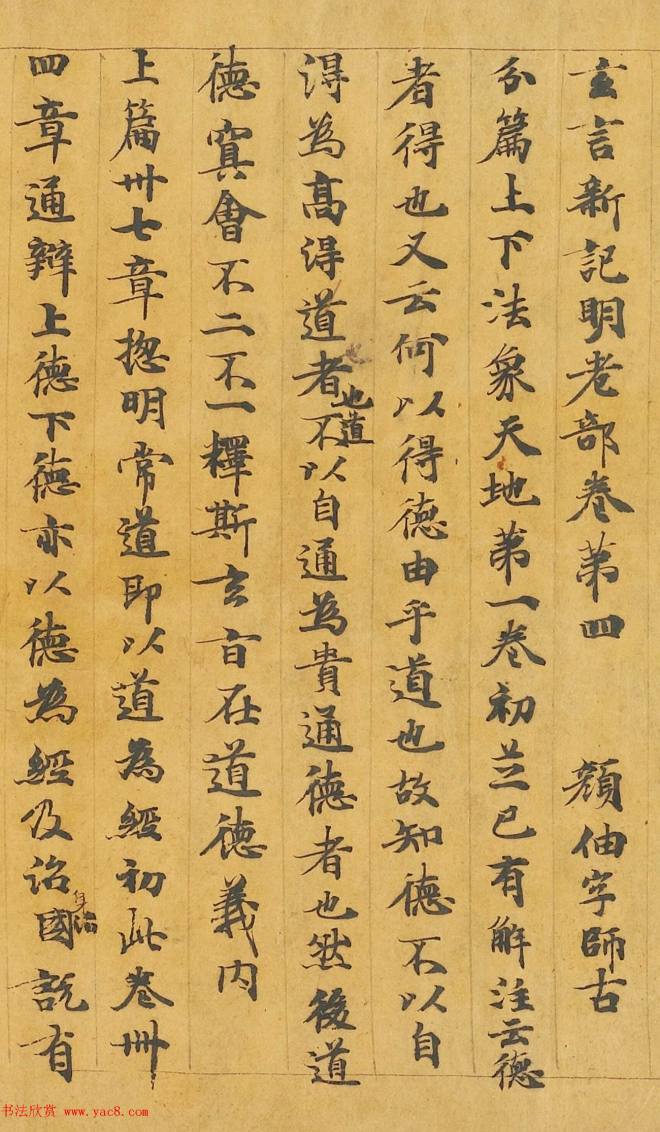 玄言新記明老部卷第四 顏伷字師古
分篇上下法象天地第一卷初並已有解注云德
者得也又云何以得德由乎道也故知德不以自
得為高得道者也道不以自通為貴通德者也然後道
德冥會不二不一釋斯玄旨在道德義內
上篇卅七章揔明常道即以道為經初此卷卌
四章通辯上德下德亦以德為經及治國身治說有
书法欣赏 www.yac8.com